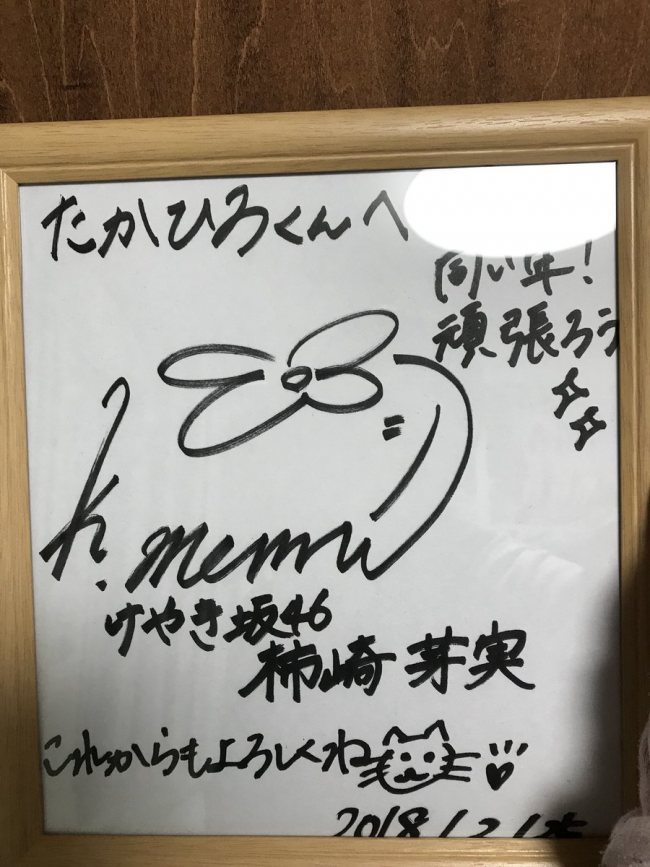 たかひろくんへ
同い年!
頑張ろう
K.memi
けやき坂46
柿崎 芽実
これからもよろしくね
2018